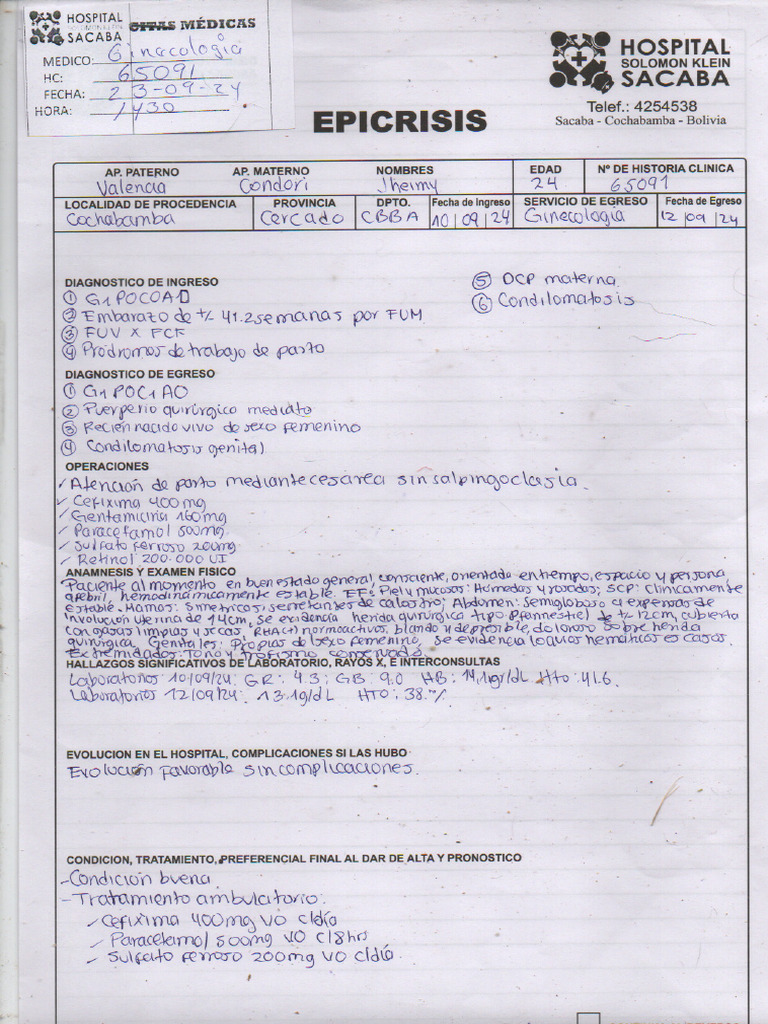 HOSPITAL
SOLOMON KLEIN
SACABA
CITAS MÉDICAS
MEDICO: Ginacologia
HC: 65091
FECHA: 23-09-24
HORA: 1430
HOSPITAL
SOLOMON KLEIN
SACABA
Telef.: 4254538
Sacaba - Cochabamba - Bolivia
EPICRISIS
AP. PATERNO AP. MATERNO NOMBRES EDAD Nº DE HISTORIA CLINICA
Valencia Condori Jheimy 24 65091
LOCALIDAD DE PROCEDENCIA PROVINCIA DPTO. Fecha de Ingreso SERVICIO DE EGRESO Fecha de Egreso
Cochabamba Cercado CBBA 10/09/24 Ginecologia 12/09/24
DIAGNOSTICO DE INGRESO
① G1P0C0A0
② Embarazo de +/- 41.2 semanas por FUM
③ FUV X FCF
④ Prodromos de trabajo de parto
⑤ DCP materna
⑥ Condilomatosis
DIAGNOSTICO DE EGRESO
① G1P0C1A0
② Puerperio quirúrgico mediato
③ Recien nacido vivo de sexo femenino
④ Condilomatosis genital
OPERACIONES
✓ Atención de parto mediante cesárea sin salpingoclasia.
✓ Cefixima 400mg
✓ Gentamicina 160mg
✓ Paracetamol 500mg
✓ Sulfato ferroso 200mg
✓ Retinol 200.000 UI
ANAMNESIS Y EXAMEN FISICO
Paciente al momento en buen estado general, consciente, orientado en tiempo, espacio y persona,
afebril, hemodinámicamente estable. EF: Piel y mucosas: Húmedas y rosadas; SCP: Clinicamente
estable. Mamas: Simetricas, secretantes de calostro; Abdomen: Semigloboso a expensas de
involución uterina de 14cm, se evidencia herida quirúrgica tipo Pfannestiel de +/- 12cm, cubierta
con gasas limpias y secas, RHA(+) normoactivos, blando y depresible, doloroso sobre herida
quirúrgica. Genitales: Propios de sexo femenino, se evidencia loquios hematicos escasos.
Extremidades: Tono y trofismo conservado
HALLAZGOS SIGNIFICATIVOS DE LABORATORIO, RAYOS X, E INTERCONSULTAS
Laboratorios 10/09/24: GR: 4.3; GB: 9.0 HB: 14,1gr/dL Hto: 41.6.
Laboratorios 12/09/24: 13.1g/dL HTO: 38.%
EVOLUCION EN EL HOSPITAL, COMPLICACIONES SI LAS HUBO
Evolución favorable sin complicaciones.
CONDICION, TRATAMIENTO, PREFERENCIAL FINAL AL DAR DE ALTA Y PRONOSTICO
- Condición buena
- Tratamiento ambulatorio:
✓ Cefixima 400mg VO c/día
✓ Paracetamol 500mg VO c/8hrs
✓ Sulfato ferroso 200mg VO c/día